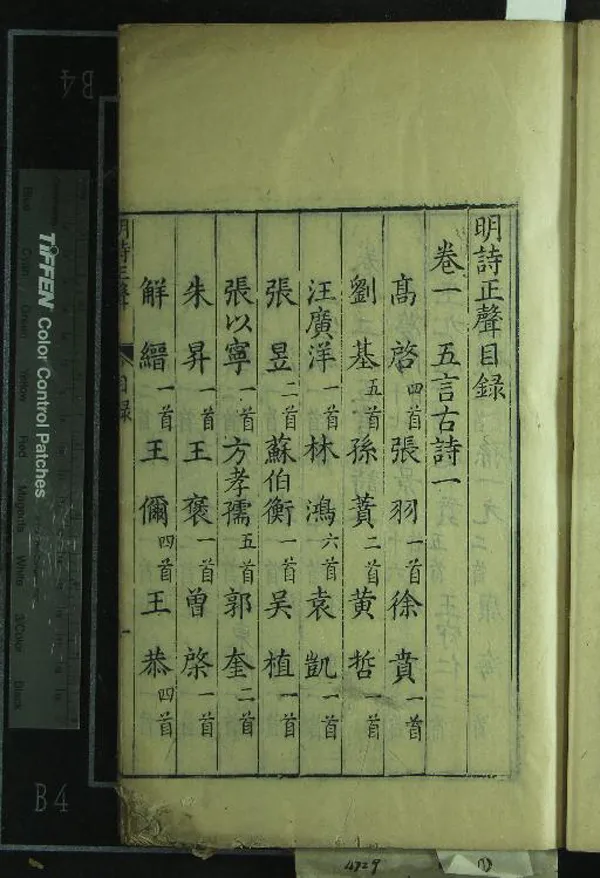 明詩正聲目錄
卷一 五言古詩一
高啓 四首 張羽 一首 徐賁 一首
劉基 五首 孫蕡 二首 黃哲 一首
汪廣洋 一首 林鴻 六首 袁凱 一首
張昱 二首 蘇伯衡 一首 吳植 一首
張以寧 一首 方孝孺 五首 郭奎 二首
朱昇 一首 王褒 一首 曾棨 一首
解縉 一首 王偁 四首 王恭 四首
明詩正聲 目錄 一
TIFFEN Color Control Patches
Blue Cyan Green Yellow Red Magenta White 3/Color Black
B4
B4
4729
①